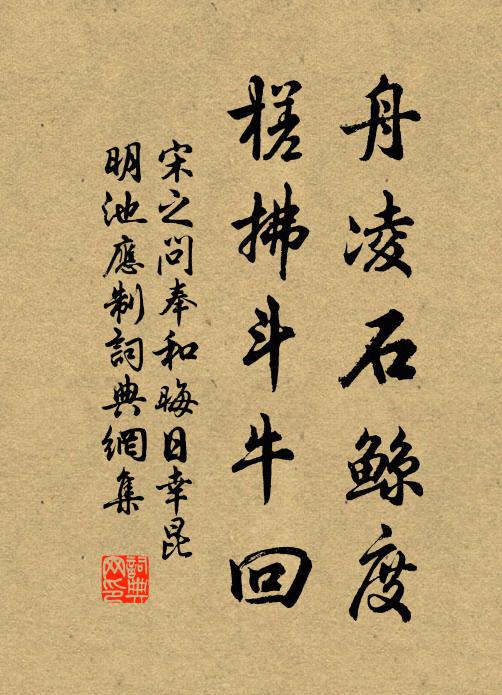 舟凌石鯨度
槎拂斗牛回
宋之問奉和晦日幸昆
明池應制詞典網集
詞典
网印